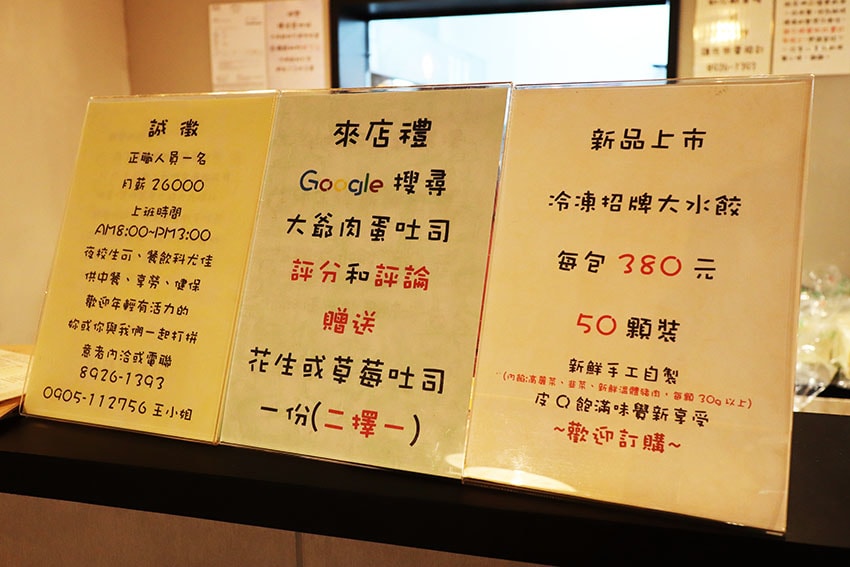 誠徵
正職人員一名
月薪 26000
上班時間
AM8:00~PM3:00
夜校生可、餐飲科尤佳
供中餐、享勞、健保
歡迎年輕有活力的
妳或你與我們一起打拼
意者內洽或電聯
8926-1393
0905-112756 王小姐
來店禮
Google 搜尋
大爺肉蛋吐司
評分和評論
贈送
花生或草莓吐司
一份(二擇一)
新品上市
冷凍招牌大水餃
每包 380 元
50 顆裝
新鮮手工自製
(內餡:高麗菜、韭菜、新鮮溫體豬肉，每顆 30g 以上)
皮Q飽滿味覺新享受
~歡迎訂購~
8926-1393